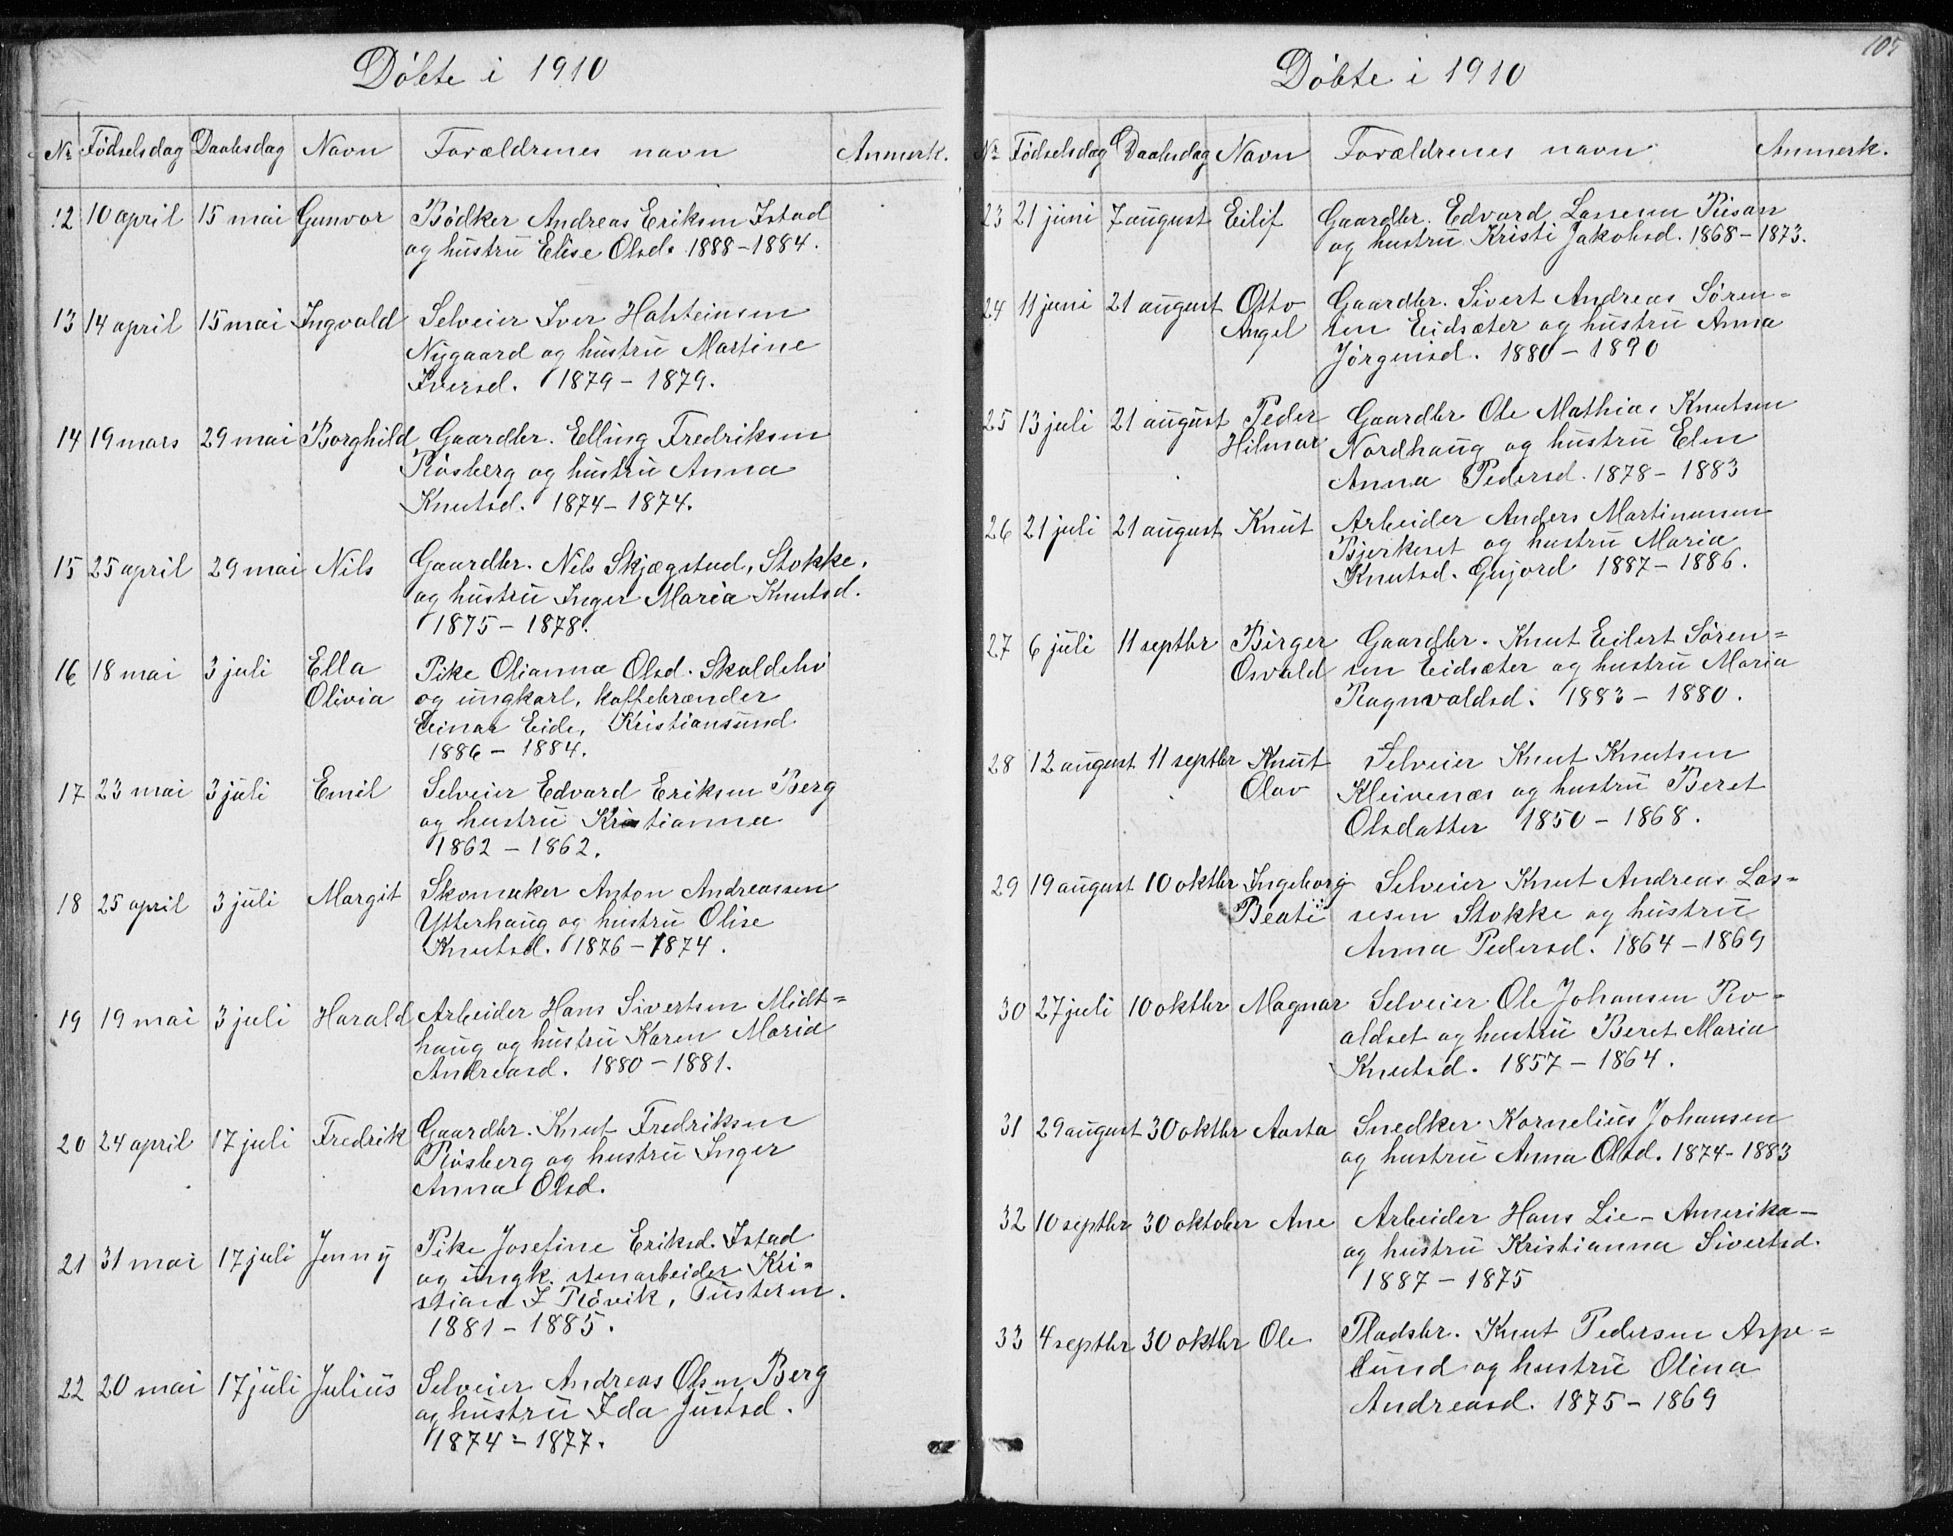 Døbte i 1910
Nr Fødselsdag Daabsdag Navn Forældrenes navn Anmerk.
12 10 april 15 mai Gunvor Bødker Andreas Eriksen Istad
og hustru Elise Olsd. 1888-1884.
13 14 april 15 mai Ingvald Selveier Iver Halsteinsen
Nygaard og hustru Martine
Iversd. 1879-1879.
14 19 mars 29 mai Borghild Gaardbr. Elling Fredriksen
Røsberg og hustru Anna
Knutsd. 1874-1874.
15 25 april 29 mai Nils Gaardbr. Nils Skjægstad, Stokke,
og hustru Inger Maria Knutsd.
1875-1878.
16 18 mai 3 juli Ella Pike Olianna Olsd.
Olivia og ungkarl, kaffebrænder
Einar Eide, Kristiansund
1886-1884.
17 23 mai 3 juli Emil Selveier Edvard Eriksen Berg
og hustru Kristianna
1862-1862.
18 25 april 3 juli Margit Skomaker Anton Andreassen
Ytterhaug og hustru Olise
Knutsd. 1876-1874.
19 19 mai 3 juli Harald Arbeider Hans Sivertsen Midt=
haug og hustru Karen Maria
Andreasd. 1880-1881.
20 24 april 17 juli Fredrik Gaardbr. Knut Fredriksen
Røsberg og hustru Inger
Anna Olsd.
21 31 mai 17 juli Jenny Pike Josefine Eriksd. Istad
og ungk. stenarbeider Kri=
stian I Røvik, Tusteren.
1881-1885.
22 20 mai 17 juli Julius Selveier Andreas Olsen Berg
og hustru Ida Justsd.
1874-1877.
Døbte i 1910
Nr Fødselsdag Daabsdag Navn Forældrenes navn Anmerk.
23 21 juni 7 august Eilif Gaardbr. Edvard Lassesen Risan
og hustru Kristi Jakobsd. 1868-1873.
24 11 juni 21 august Otto Gaardbr. Sivert Andreas Søren=
Angel sen Eidsæter og hustru Anna
Jørgensd. 1880-1890
25 13 juli 21 august Peder Gaardbr Ole Mathias Knutsen
Hilmar Nordhaug og hustru Elen
Anna Pedersd. 1878-1883
26 21 juli 21 august Knut Arbeider Anders Martinussen
Bjerkeset og hustru Maria
Knutsd. Gujord 1887-1886.
27 6 juli 11 septbr Birger Gaardbr. Knut Eilert Søren=
Osvald sen Eidsæter og hustru Maria
Ragnvaldsd. 1883-1880.
28 12 august 11 septbr Knut Selveier Knut Knutsen
Olav Kleivenæs og hustru Beret
Olsdatter 1850-1868.
29 19 august 10 oktbr Ingeborg Selveier Knut Andreas Las=
Beate sesen Stokke og hustru
Anna Pedersd. 1864-1869
30 27 juli 10 oktbr Magnar Selveier Ole Johansen Ro=
aldset og hustru Beret Maria
Knutsd. 1857-1864.
31 29 august 30 oktbr Aasta Snedker Kornelius Johansen
og hustru Anna Olsd. 1874-1883
32 10 septbr 30 oktober Ane Arbeider Hans Lie - Amerika -
og hustru Kristianna Sivertsd.
1887-1875
33 4 septbr 30 oktbr Ole Pladsbr. Knut Pedersen Aspe=
lund og hustru Olina
Andreasd. 1875-1869